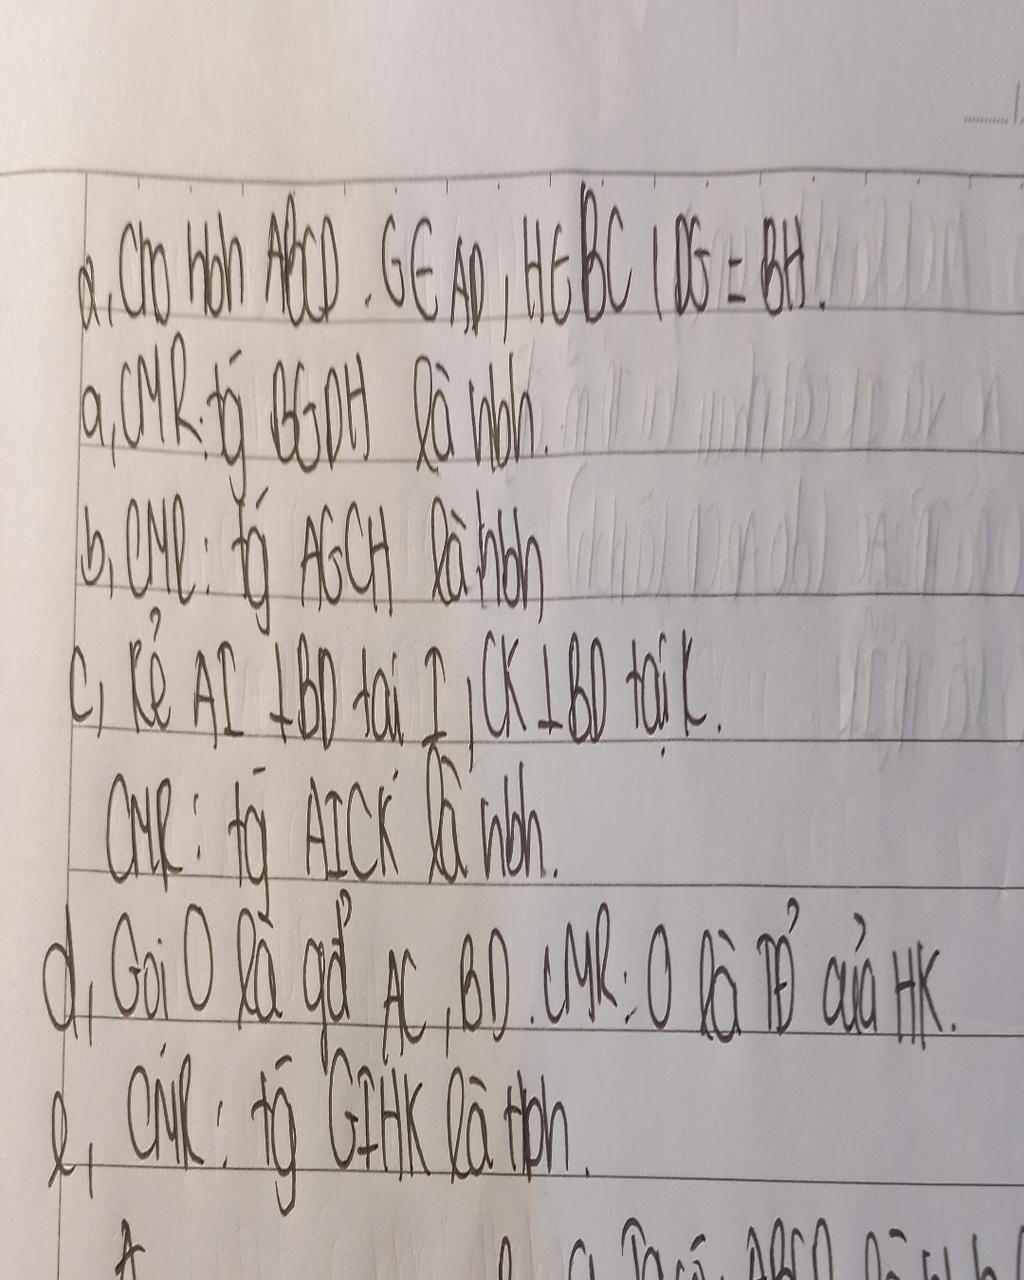 a, Cho hbh ABCD. G∈AD, H∈BC, DG = BH.
a, CMR: tg BGDH là hbh.
b, CMR: tg AGCH là hbh
c, Kẻ AI ⊥BD tại I, CK⊥BD tại K.
CMR: tg AICK là hbh.
d, Gọi O là gđ AC, BD. CMR: O là TĐ của HK.
e, CMR: tg GIHK là hbh.
A a, Ta có ABCD là hbh